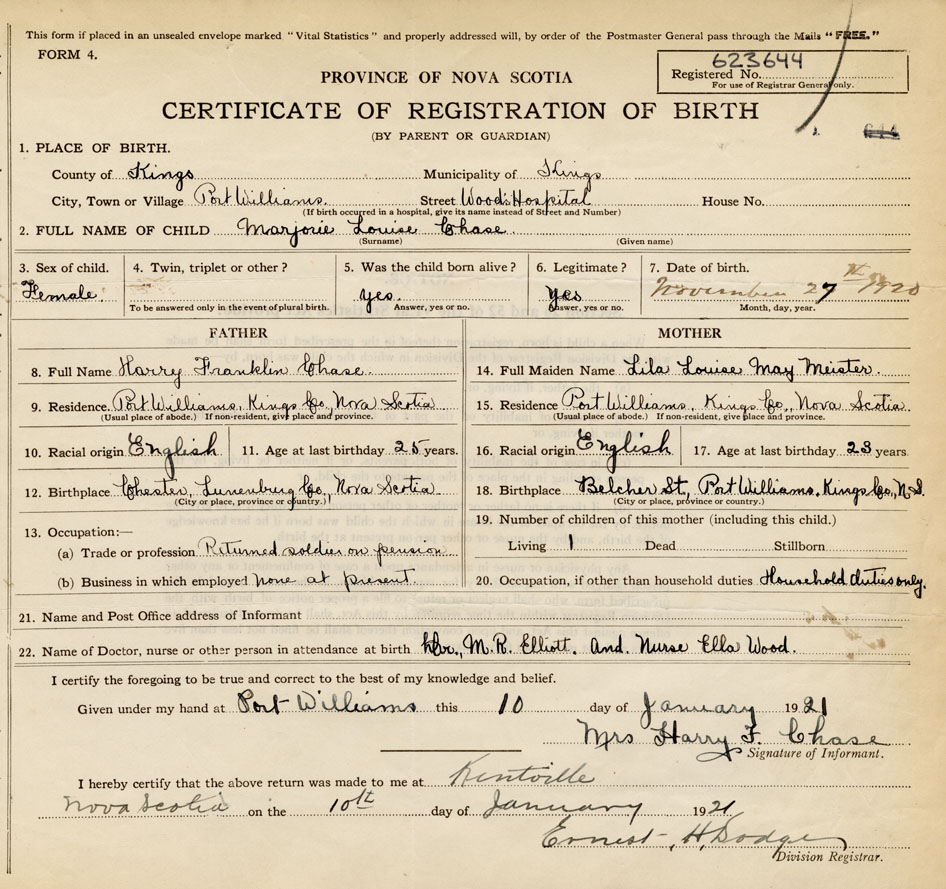 This form if placed in an unsealed envelope marked "Vital Statistics" and properly addressed will, by order of the Postmaster General pass through the Mails "FREE."
FORM 4.
623644
Registered No.
For use of Registrar General only.
PROVINCE OF NOVA SCOTIA
CERTIFICATE OF REGISTRATION OF BIRTH
(BY PARENT OR GUARDIAN)
1. PLACE OF BIRTH.
County of Kings Municipality of Kings
City, Town or Village Port Williams. Street Wood's Hospital House No.
(If birth occurred in a hospital, give its name instead of Street and Number)
2. FULL NAME OF CHILD Marjorie Louise Chase.
(Surname) (Given name)
3. Sex of child. 4. Twin, triplet or other? 5. Was the child born alive? 6. Legitimate? 7. Date of birth.
Female. yes. yes November 27th 1920
To be answered only in the event of plural birth. Answer, yes or no. Answer, yes or no. Month, day, year.
FATHER MOTHER
8. Full Name Harry Franklin Chase. 14. Full Maiden Name Lila Louise May Meister.
9. Residence. Port Williams, Kings Co., Nova Scotia 15. Residence Port Williams, Kings Co., Nova Scotia.
(Usual place of abode.) If non-resident, give place and province. (Usual place of abode.) If non-resident, give place and province.
10. Racial origin English 11. Age at last birthday 25 years. 16. Racial origin English 17. Age at last birthday 23 years
12. Birthplace Chester, Lunenburg Co., Nova Scotia 18. Birthplace Belcher St, Port Williams, Kings Co., N.S.
(City or place, province or country.) (City or place, province or country.)
13. Occupation:— 19. Number of children of this mother (including this child.)
(a) Trade or profession Returned soldier on pension Living 1 Dead Stillborn
(b) Business in which employed none at present. 20. Occupation, if other than household duties Household duties only.
21. Name and Post Office address of Informant
22. Name of Doctor, nurse or other person in attendance at birth Dr., M.R. Elliott. And. Nurse Ella Wood.
I certify the foregoing to be true and correct to the best of my knowledge and belief.
Given under my hand at Port Williams this 10 day of January 1921
Mrs Harry F. Chase
Signature of Informant.
I hereby certify that the above return was made to me at Kentville
Nova Scotia on the 10th day of January 1921
Ernest H. Dodge
Division Registrar.